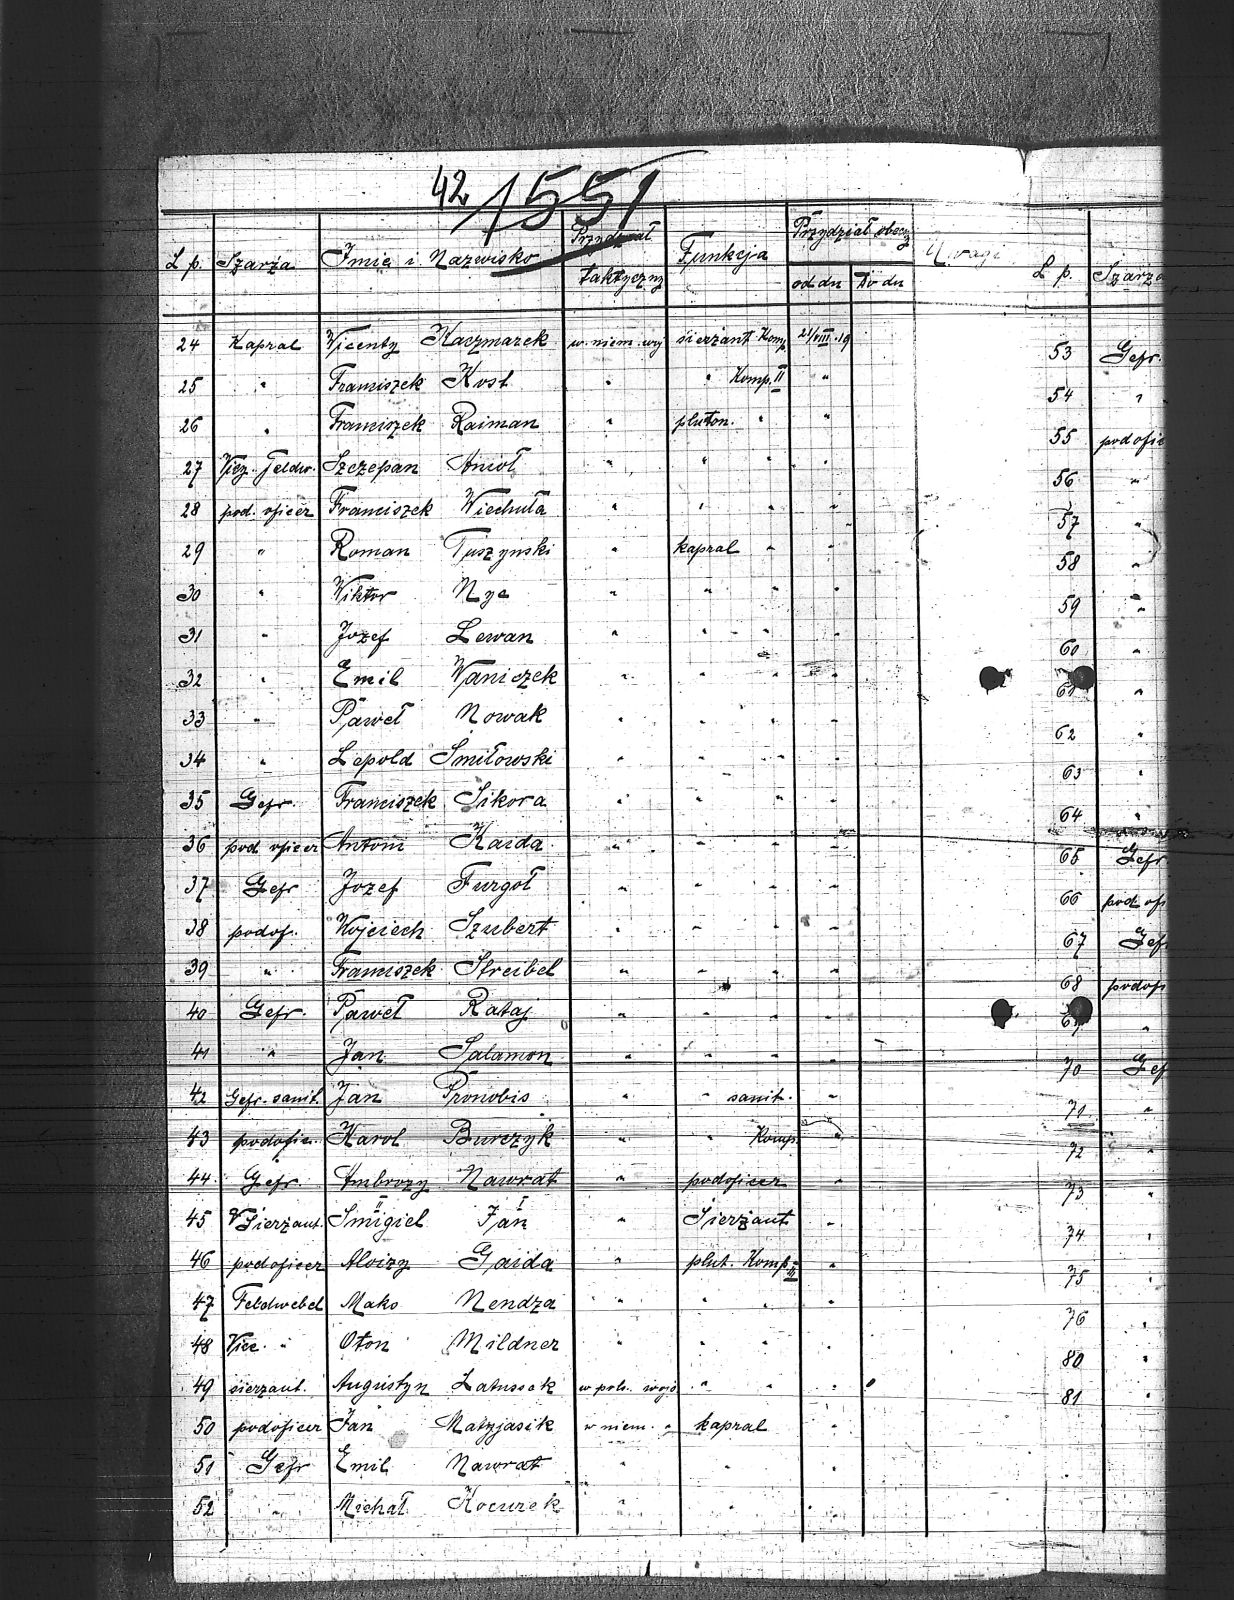 42 1551
L p. Szarża Imię i Nazwisko Przydział taktyczny Funkcja Przydział obecny od dn Do dn Uwagi
24 Kapral Wicenty Kaczmarek w niem. woj sierżant Komp. 21/VIII.19
25 " Franciszek Kost " " Komp. II "
26 " Franciszek Raiman " pluton. " "
27 Vicz. Feldw. Szczepan Anioł " " " "
28 pod. oficer Franciszek Wiechuła " " " "
29 " Roman Tuszyński " kapral " "
30 " Wiktor Nye " " " "
31 " Jozef Lewan " " " "
32 " Emil Waniczek " " " "
33 " Paweł Nowak " " " "
34 " Lepold Smiłowski " " " "
35 Gefr. Franciszek Sikora " " " "
36 pod oficer Antoni Kaida " " " "
37 Gefr Jozef Furgoł " " " "
38 podof. Wojciech Szubert " " " "
39 " Franciszek Streibel " " " "
40 Gefr. Paweł Rataj " " " "
41 " Jan Salamon " " " "
42 Gefr. sanit. Jan Pronobis " " sanit. "
43 podofic. Karol Burczyk " " Komp. "
44. Gefr. Ambrozy Nawrat " podoficer "
45 V Sierżant. Smigiel II Jan I " Sierżant "
46 podoficer Aloizy Gaida " plut. Komp. III "
47 Feldwebel Mako Nendza " " " "
48 Vice. " Oton Mildner " " " "
49 sierzant. Augustyn Latussek w pols. wojs " " "
50 podoficer Jan Matyjasik w niem. " kapral "
51 Gefr Emil Nawrat " " " "
52 " Michał Kocurek " " " "
L p. Szarża
53 Gefr.
54 "
55 podofic
56 "
57 "
58 "
59 "
60 "
61 "
62 "
63 "
64 "
65 Gefr
66 pod ofi
67 Gef
68 podofi
69 "
70 Gef
71 "
72 "
73 "
74 "
75 "
76 "
80 "
81 "